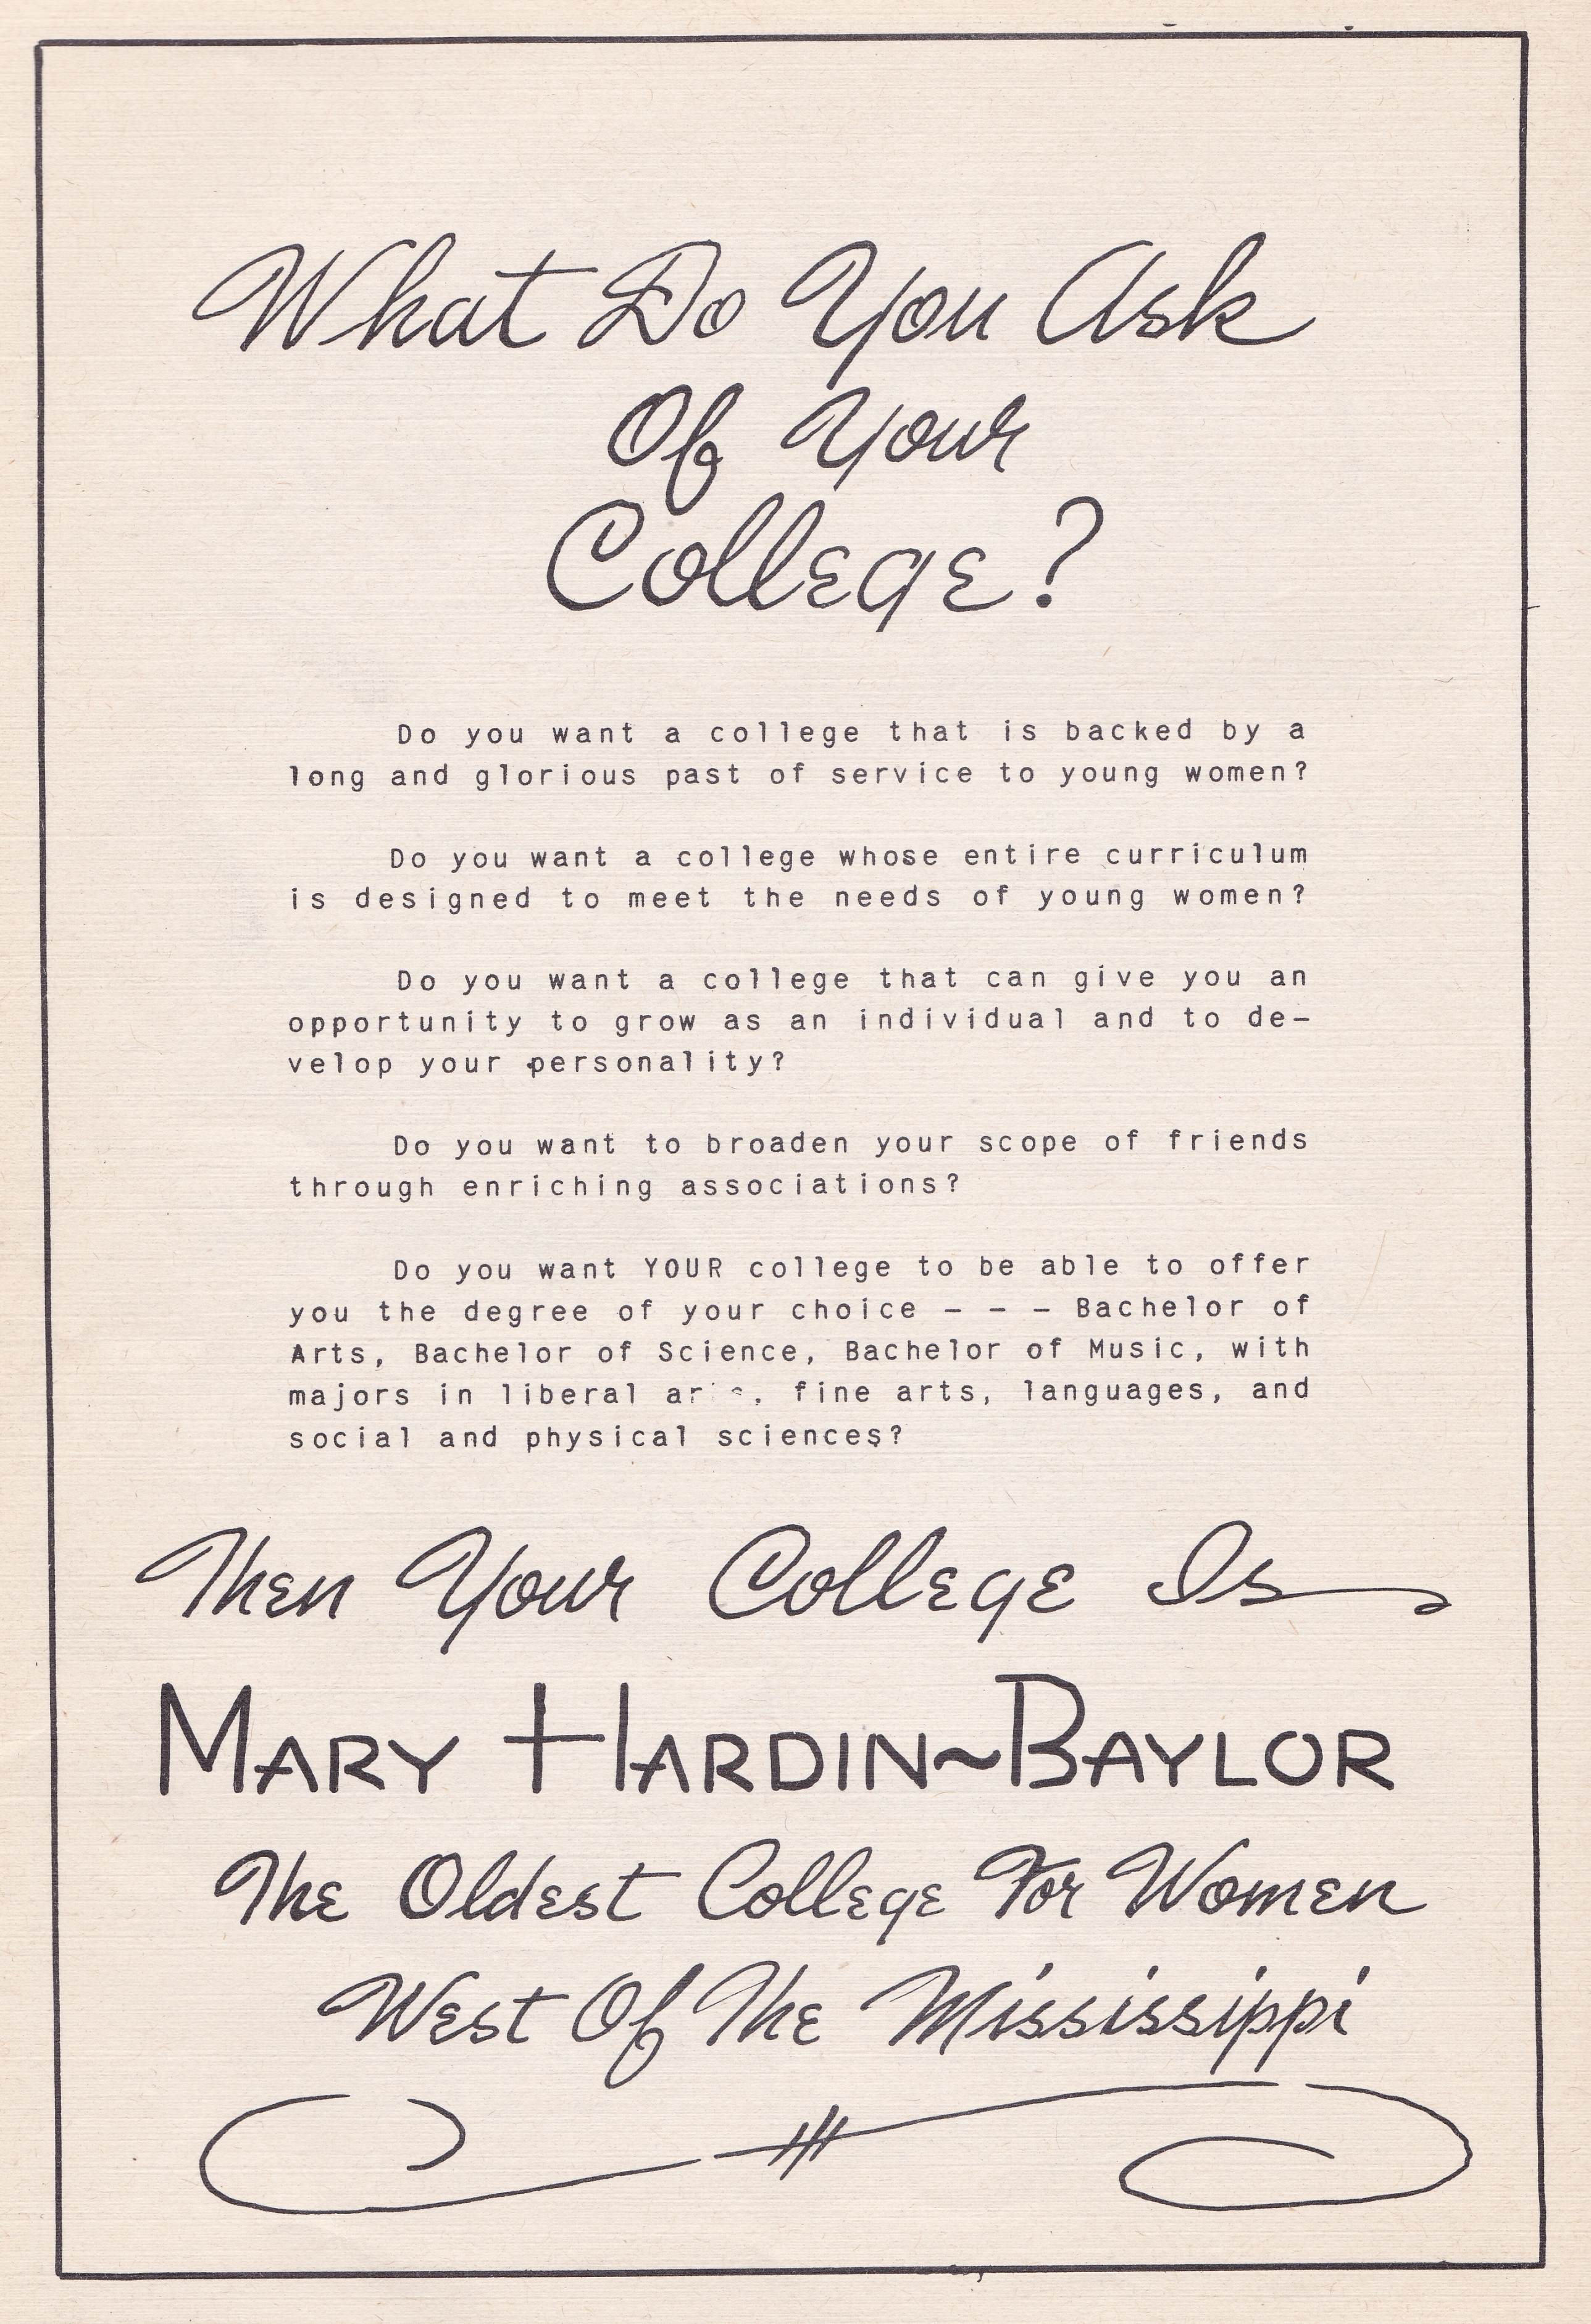 What Do You Ask
Of Your
College?
Do you want a college that is backed by a
long and glorious past of service to young women?
Do you want a college whose entire curriculum
is designed to meet the needs of young women?
Do you want a college that can give you an
opportunity to grow as an individual and to de-
velop your personality?
Do you want to broaden your scope of friends
through enriching associations?
Do you want YOUR college to be able to offer
you the degree of your choice - - - Bachelor of
Arts, Bachelor of Science, Bachelor of Music, with
majors in liberal arts, fine arts, languages, and
social and physical sciences?
Then Your College Is
MARY HARDIN~BAYLOR
The Oldest College For Women
West Of The Mississippi